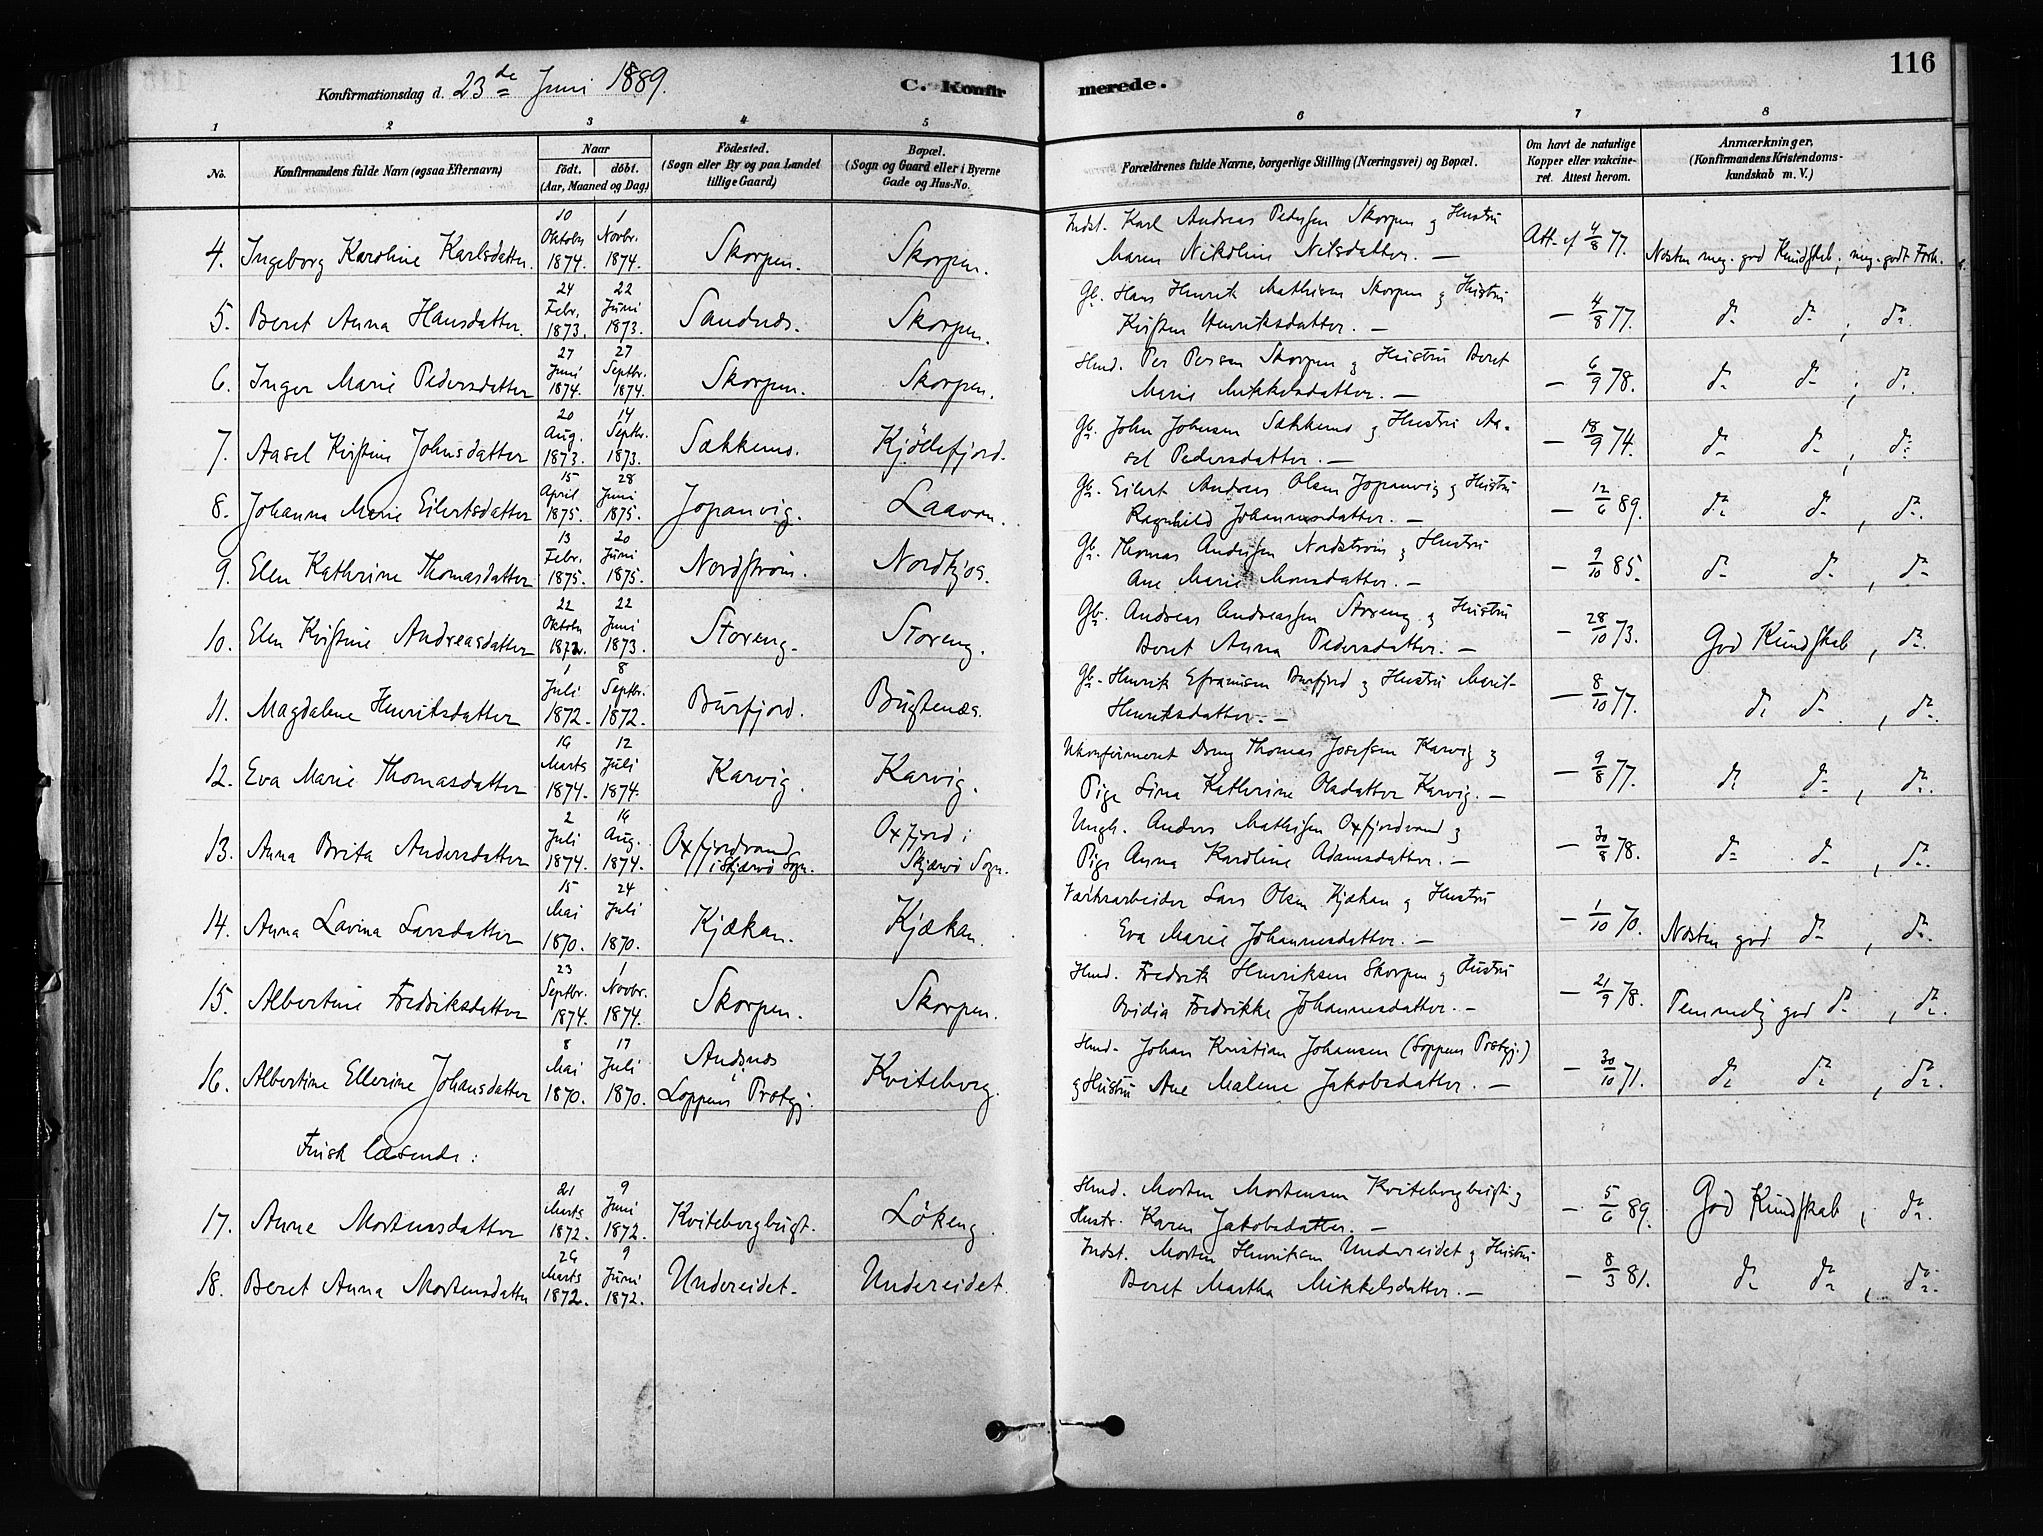 116
Konfirmationsdag d. 23de Juni 1889.
C. Konfirmerede.
1 2 3 4 5 6 7 8
No.
Konfirmandens fulde Navn (ogsaa Efternavn)
Naar
født. døbt.
(Aar, Maaned og Dag)
Fødested.
(Sogn eller By og paa Landet
tillige Gaard)
Bopæl.
(Sogn og Gaard eller i Byerne
Gade og Hus-No.
Forældrenes fulde Navne, borgerlige Stilling (Næringsvei) og Bopæl.
Om havt de naturlige
Kopper eller vakcine-
ret. Attest herom.
Anmærkninger,
(Konfirmandens Kristendoms-
kundskab m. V.)
4. Ingeborg Karoline Karlsdatter. 10 Oktober 1874. 1 Novbr. 1874. Skorpen. Skorpen. Indst. Karl Andreas Pedersen Skorpen og Hustru
Maren Nikoline Nilsdatter. — Att. af 4/8 77. Næsten meg. god Kundskab; meg. godt Forh.
5. Beret Anna Hansdatter. 24 Febr. 1873. 22 Juni 1873. Sandnæs. Skorpen. Gb. Hans Henrik Mathisen Skorpen og Hustru
Kristen Henriksdatter. — — 4/8 77. do do ; do.
6. Inger Marie Pedersdatter 27 Juni 1874. 27 Septbr. 1874. Skorpen. Skorpen. Hmd. Per Persen Skorpen og Hustru Beret
Marie Mikkelsdatter. — — 6/9 78. do do ; do.
7. Aasel Kristine Johnsdatter 20 Aug. 1873. 14 Septbr. 1873. Sækkemo. Kjöllefjord. Gb. John Johnsen Sækkemo og Hustru Aa-
sel Pedersdatter. — — 18/9 74. do do , do
8. Johanna Marie Eilertsdatter 15 April 1875. 28 Juni 1875. Jopanvig. Laavan. Gb. Eilert Andreas Olsen Jopanvig og Hustru
Ragnhild Johannesdatter. — — 12/6 89. do do , do.
9. Elen Kathrine Thomasdatter 13 Febr. 1875. 20 Juni 1875. Nordstrøm. Nordkjos. Gb. Thomas Andersen Nordstrøm og Hustru
Ane Marie Monsdatter. — — 9/10 85. do do , do
10. Elen Kristine Andreasdatter 22 Oktober 1872. 22 Juni 1873. Storeng. Storeng. Gb. Andreas Andreassen Storeng og Hustru
Beret Anna Pedersdatter. — — 28/10 73. God Kundskab , do.
11. Magdalene Henriksdatter 1 Juli 1872. 8 Septbr. 1872. Burfjord. Bugtenæs. Gb. Henrik Efraimsen Burfjord og Hustru Marit
Henriksdatter. — — 8/10 77. do do , do.
12. Eva Marie Thomasdatter 19 Marts 1874. 12 Juli 1874. Karvig. Karvig. Ukonfirmeret Dreng Thomas Josefsen Karvig og
Pige Lina Kathrine Olsdatter Karvig. — — 9/8 77. do do , do.
13. Anna Brita Andersdatter 2 Juli 1874. 16 Aug. 1874. Oxfjordvand
i Skjærvö Sogn. Oxfjord i
Skjærvö Sogn. Ungk. Anders Mathisen Oxfjordvand og
Pige Anna Karoline Adamsdatter. — — 30/8 78. do do , do.
14. Anna Lavina Larsdatter 15 Mai 1870. 24 Juli 1870. Kjækan. Kjækan. Værksarbeider Lars Olsen Kjækan og Hustru
Eva Marie Johannesdatter. — — 1/10 70. Næsten god do , do.
15. Albertine Fredriksdatter 23 Septbr. 1874. 1 Novbr. 1874. Skorpen. Skorpen. Hmd. Fredrik Henriksen Skorpen og Hustru
Ovidia Fredrikke Johannesdatter. — — 21/9 78. Temmelig god do , do.
16. Albertine Ellerine Johansdatter 8 Mai 1870. 17 Juli 1870. Andsnæs
i
Loppens Prstgj. Kviteberg. Hmd. Johan Kristian Johansen (Loppens Prstgj.)
og Hustru Ane Malene Jakobsdatter. — — 30/10 71. do do , do.
Finsk læsende:
17. Anne Mortensdatter 21 Marts 1872. 9 Juni 1872. Kvitebergbugt. Lökeng. Hmd. Morten Mortensen Kvitebergbugt og
Hustr. Karen Jakobsdatter. — — 5/6 89. God Kundskab , do.
18. Beret Anna Mortensdatter 29 Marts 1872. 9 Juni 1872. Undereidet. Undereidet. Indst. Morten Henriksen Undereidet og Hustru
Beret Martha Mikkelsdatter. — — 8/3 81. do do , do.